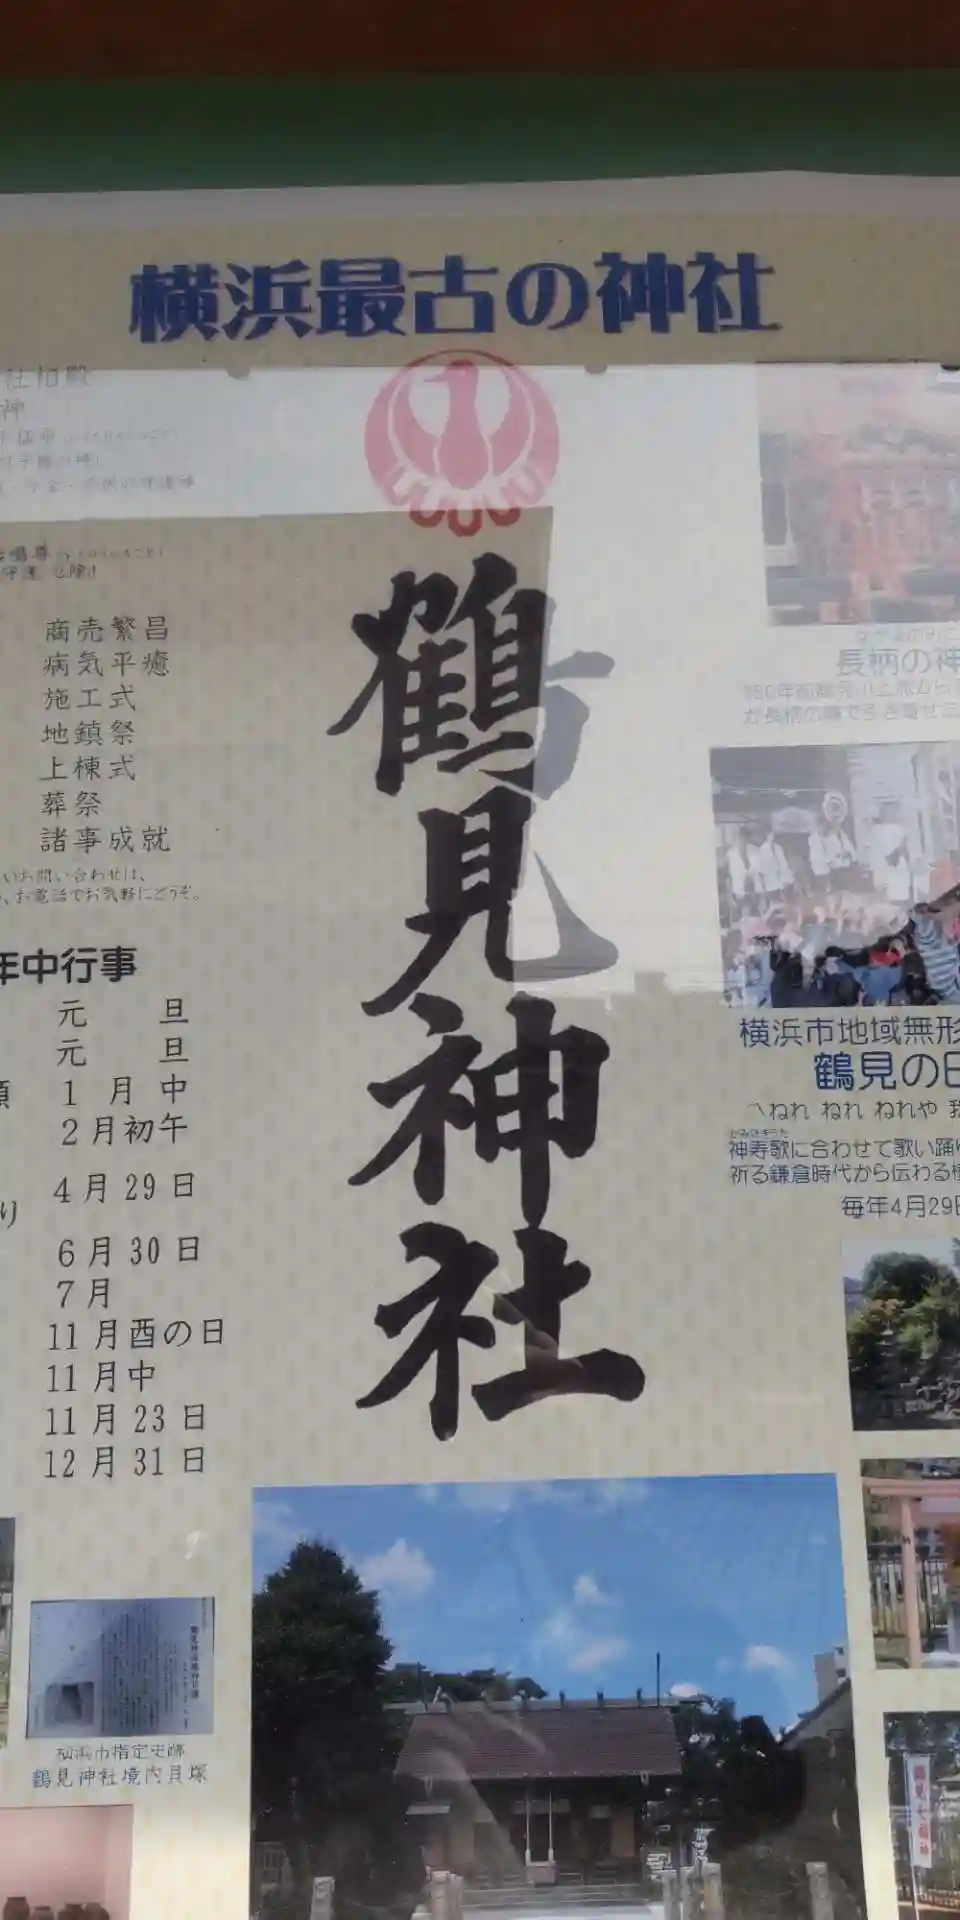 横浜最古の神社
鶴見神社
商売繁昌
病気平癒
施工式
地鎮祭
上棟式
葬祭
諸事成就
いお問い合わせは、
、お電話でお気軽にどうぞ。
年中行事
元 旦
元 旦
1 月 中
2月初午
4月29日
り
6月30日
7月
11月酉の日
11月中
11月23日
12月31日
横浜市指定史跡
鶴見神社境内貝塚
長柄の神
横浜市地域無形
鶴見の田
へねれ ねれ ねれや 我
神寿歌に合わせて歌い踊り
祈る鎌倉時代から伝わる横
毎年4月29日